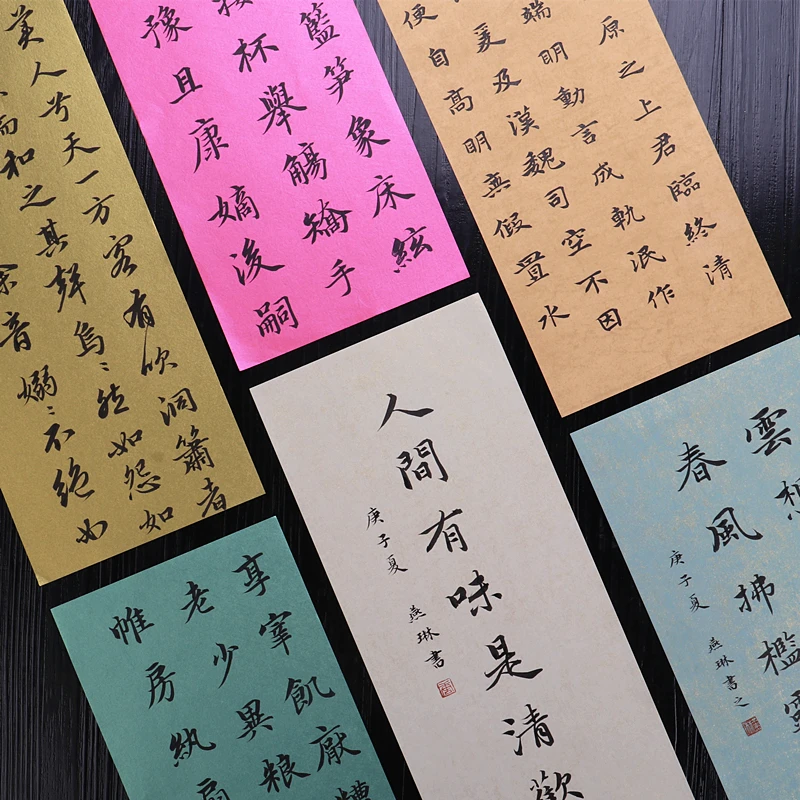 美人兮天一方客有吹洞簫者
而和之其聲烏〻然如怨如
余音嫋〻不絕如
籃笋象床絃
接杯舉觴矯手
豫且康嫡後嗣
原之上君臨終清
端明動言成軌泯作
爰及漢魏司空不因
便自高明真假置水
人間有味是清歡
庚子夏 燕琳書
雲想
春風拂檻露
庚子夏 燕琳書之
享宰飢厭糟
老少異糧
帷房紈扇